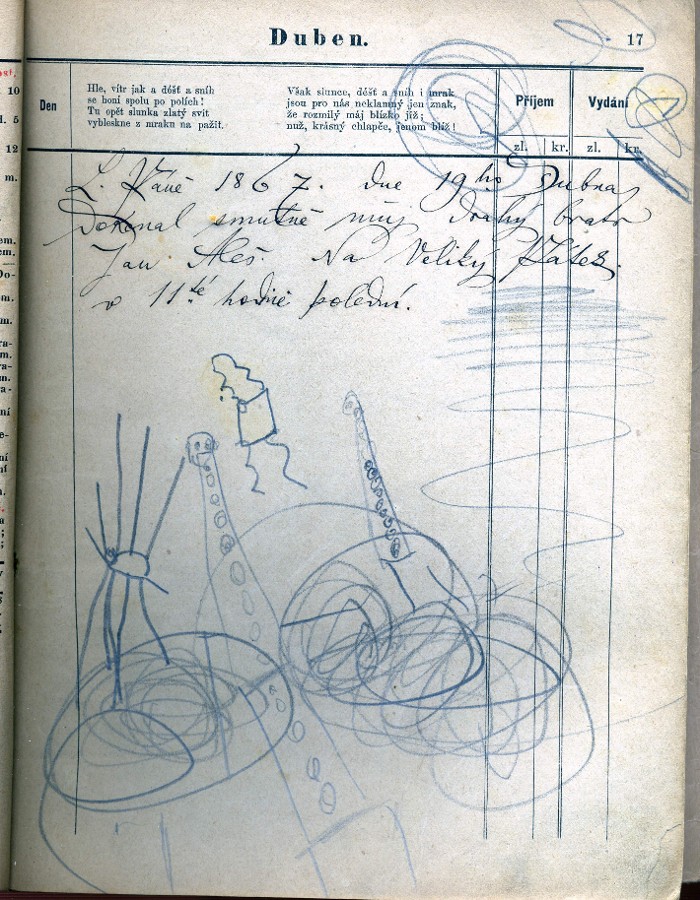 Duben.
17
Den
Hle, vítr jak a déšť a sníh
se honí spolu po polích!
Tu opět slunka zlatý svit
vybleskne z mraku na pažit.
Však slunce, déšť a sníh i mrak
jsou pro nás neklamný jen znak,
že rozmilý máj blízko již;
nuž, krásný chlapče, jenom blíž!
Příjem
Vydání
zl.
kr.
zl.
kr.
L. Páně 1867. dne 19ho Dubna
Dokonal smutně můj drahý bratr
Jan Aleš. Na Veliký Pátek.
v 11té hodině polední.
10
5
12
m.